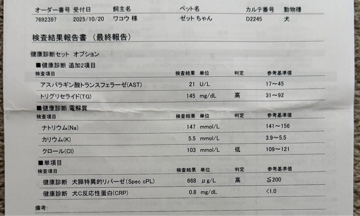 オーダー番号 受付日 飼主名 ペット名 カルテ番号 動物種
7692397 2025/10/20 ワコウ 様 ゼット ちゃん D2245 犬
検査結果報告書（最終報告）
健康診断セット オプション
■健康診断 追加2項目
検査項目 検査結果 単位 判定 参考基準値
アスパラギン酸トランスフェラーゼ(AST) 21 U/L 17～45
トリグリセライド(TG) 145 mg/dL 高 31～92
■健康診断 電解質
検査項目 検査結果 単位 判定 参考基準値
ナトリウム(Na) 147 mmol/L 141～156
カリウム(K) 5.5 mmol/L 3.9～5.5
クロール(Cl) 103 mmol/L 低 109～121
■単項目
検査項目 検査結果 単位 判定 参考基準値
健康診断 犬膵特異的リパーゼ(Spec cPL) 668 μg/L 高 ≦200
健康診断 犬C反応性蛋白(CRP) 0.8 mg/dL <1.0
備考: